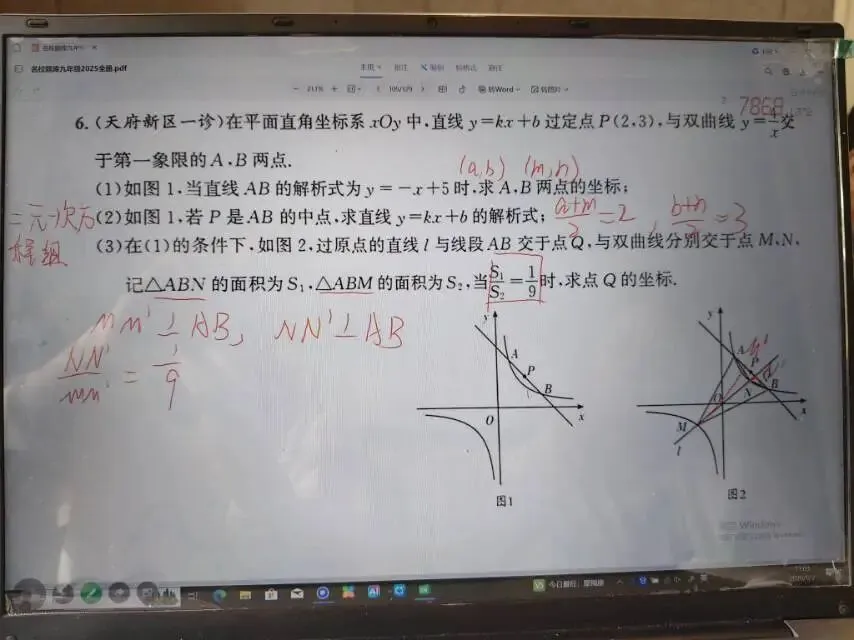 名校题库九年级2025全册.pdf
211%
105/129
转Word
7868
6.(天府新区一诊)在平面直角坐标系 xOy 中,直线 y=kx+b 过定点 P(2,3),与双曲线 y=4/x 交
于第一象限的 A、B 两点.
(a,b) (m,n)
(1)如图 1,当直线 AB 的解析式为 y=-x+5 时,求 A、B 两点的坐标;
二元一次方程组
(2)如图 1,若 P 是 AB 的中点,求直线 y=kx+b 的解析式;
(a+m)/2=2, (b+n)/2=3
(3)在(1)的条件下,如图 2,过原点的直线 l 与线段 AB 交于点 Q,与双曲线分别交于点 M、N,
记△ABN 的面积为 S₁,△ABM 的面积为 S₂,当 S₁/S₂=1/9 时,求点 Q 的坐标.
MM'⊥AB, NN'⊥AB
NN'/MM' = 1/9
y
A
P
B
O
x
图1
y
A
M'
P
Q
N
B
O
x
M
l
图2
Windows